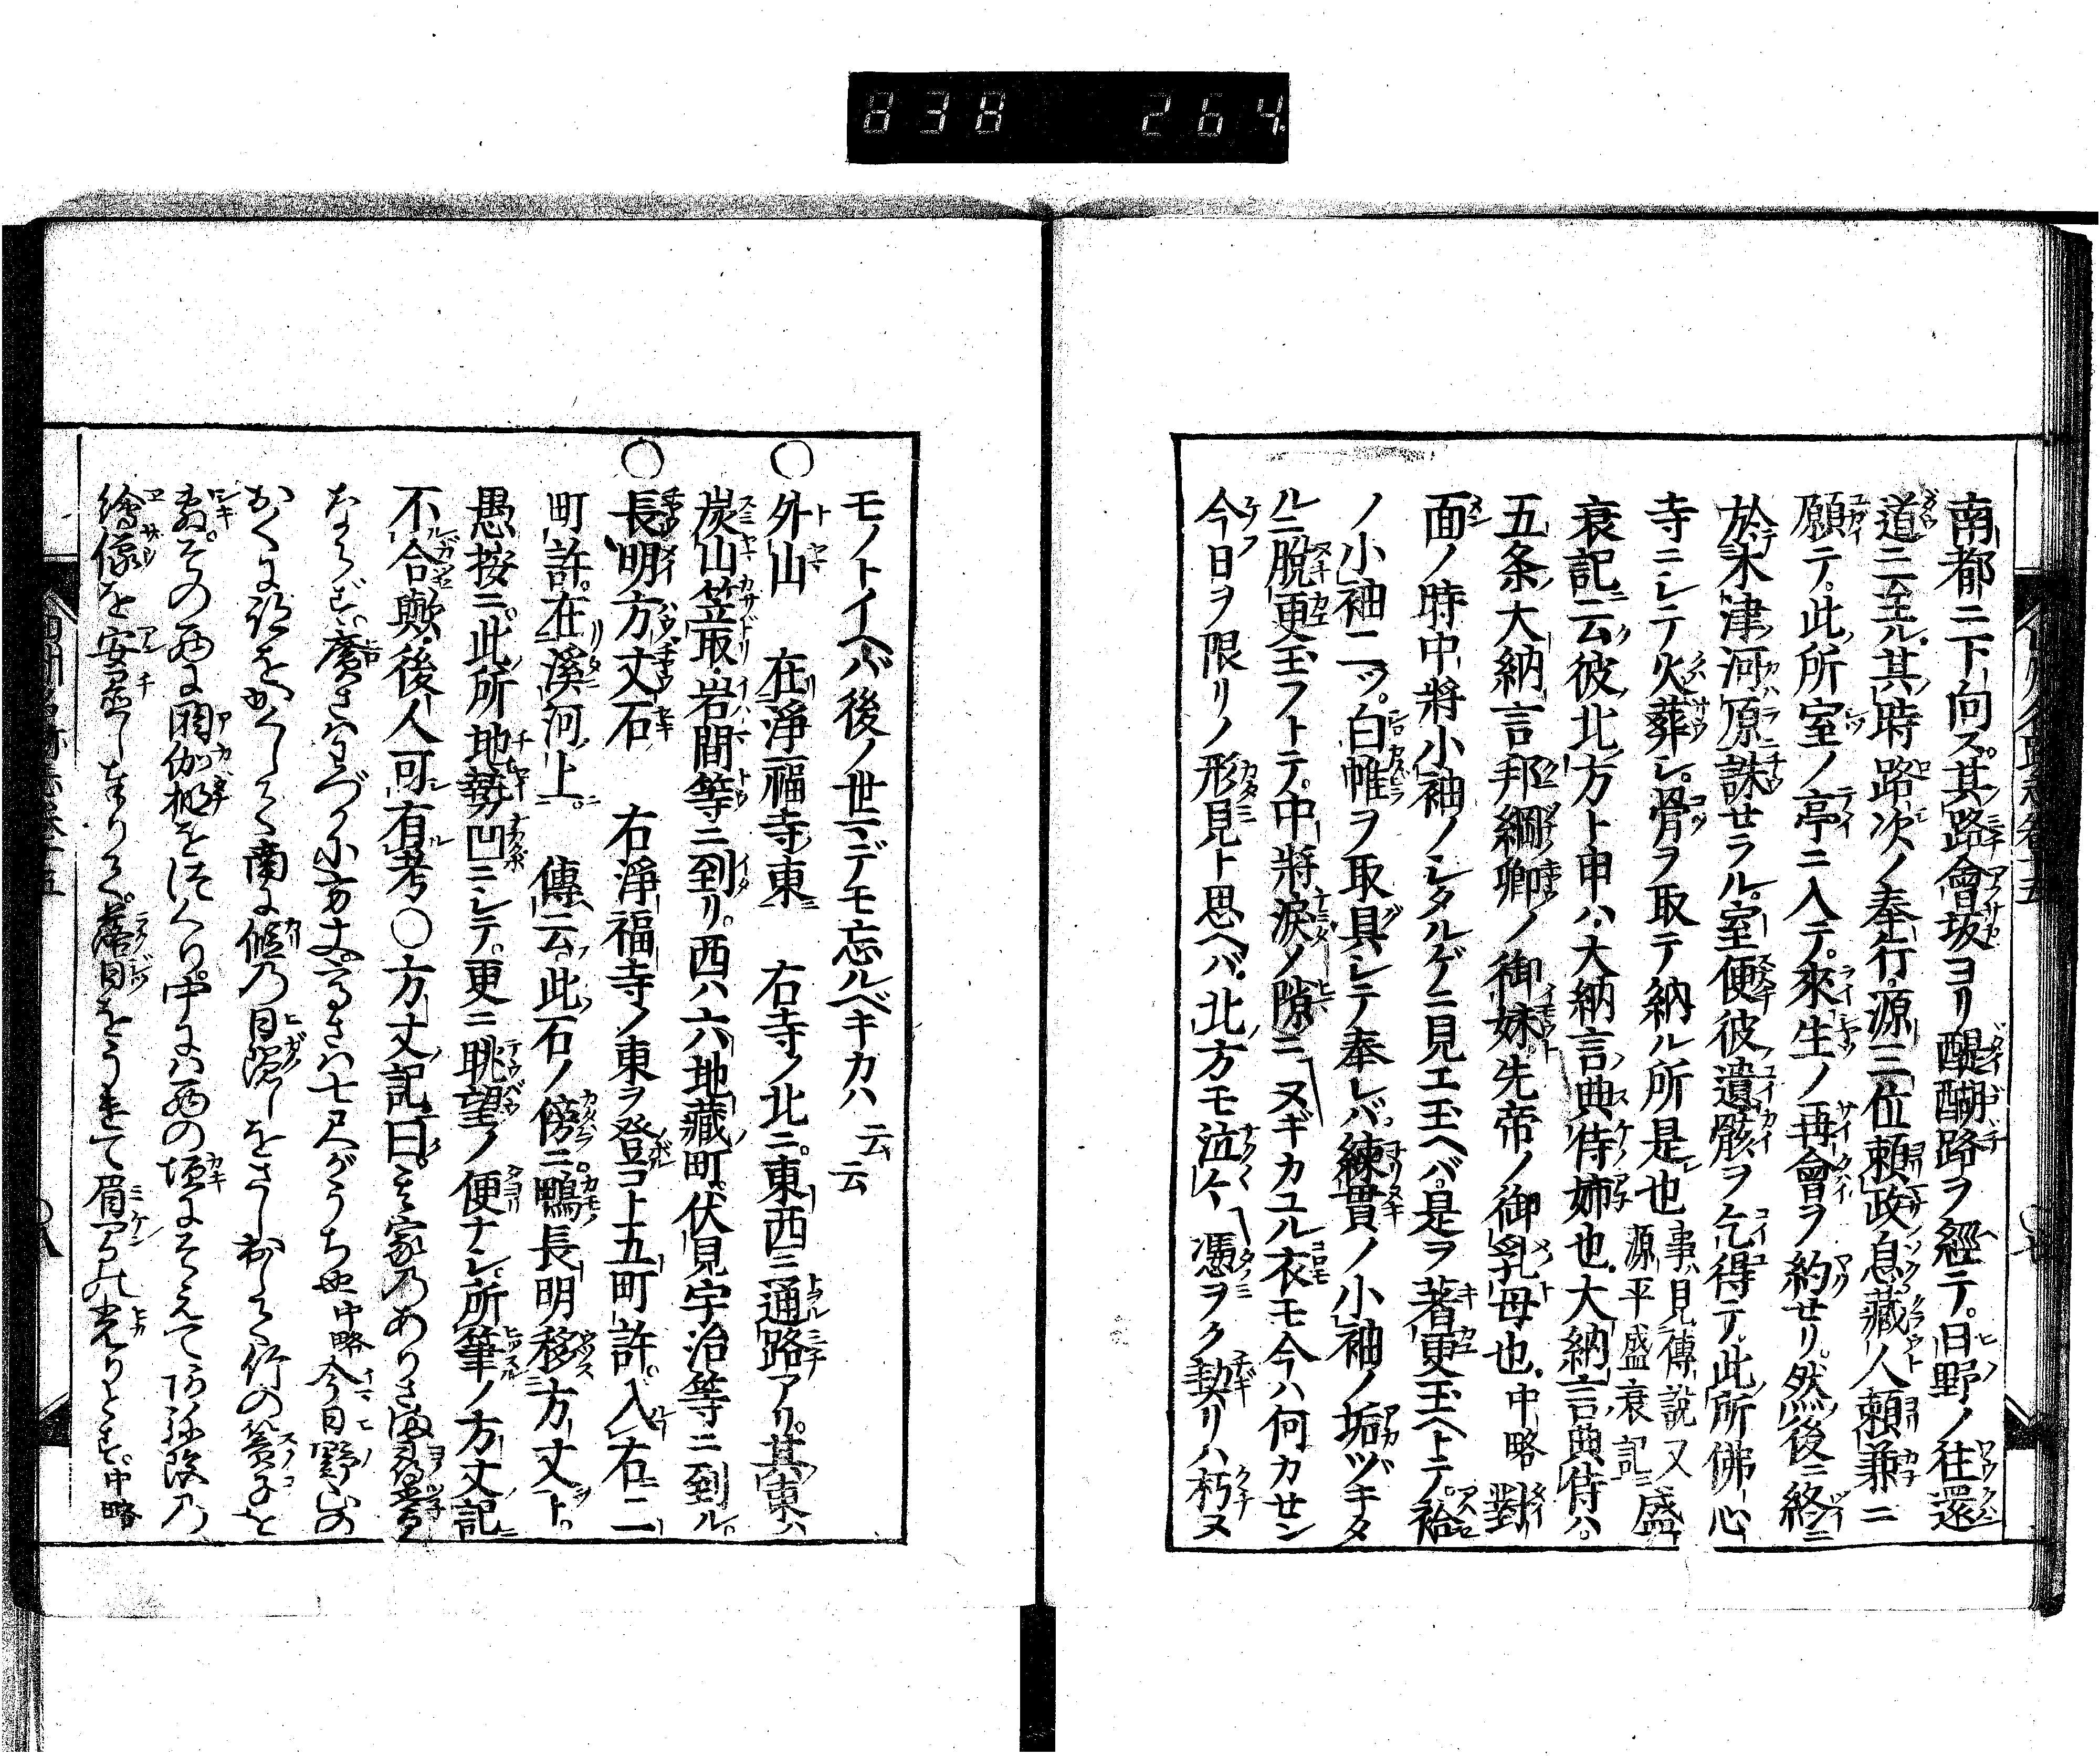 838 264
南都ニ下向ス其路會坂ヨリ醍醐路ヲ經テ日野ノ往還
道ニ至ル其時路次ノ奉行源三位頼政息藏人頼兼ニ
願テ此所室ノ亭ニ入テ來生ノ再會ヲ約セリ然後ニ終ニ
於木津河原誅セラル室便彼遺骸ヲ乞得テ此所佛心
寺ニシテ火葬シ骨ヲ取テ納ル所是也事見傳説又源平盛衰記ニ盛
衰記云彼北方ト申ハ大納言典侍姉也大納言典侍ハ
五条大納言邦綱卿ノ御妹先帝ノ御乳母也中略對
面ノ時中將小袖ノシタルゲニ見エ玉ヘバ是ヲ著更玉ヘトテ袷
ノ小袖二ツ白帷ヲ取具シテ奉レバ練貫ノ小袖ノ垢ヅキタ
ルニ脱更玉フトテ中將涙ノ隙ニ
ヌギカユル衣モ今ハ何カセン
今日ヲ限リノ形見ト思ヘバ北方モ泣々
憑ヲク契リハ朽ヌ
モノトイヘバ後ノ世マデモ忘ルベキカハ云云
○外山 在淨福寺東 右寺ノ北ニ東西ニ通路アリ其東ハ
炭山笠取岩間等ニ到リ西ハ六地藏町伏見宇治等ニ到ル
○長明方丈石 右淨福寺ノ東ヲ登コト五町許入右ニ二
町許在溪河上 傳云此石ノ傍ニ鴨長明移方丈ト
愚按ニ此所地勢凹ニシテ更ニ眺望ノ便ナシ所筆ノ方丈記
不合歟後人可有考○方丈記曰其家のありさま
ならず廣さはわづかに方丈高さは七尺がうち也中略今日野山の
おくに跡をかくして南に假の日隱しをさし出して竹の簀子を
敷その西に閼伽棚をつくり中には西の垣にそえて阿弥陀の
繪像を安置し奉りて落日をうけて眉間の光りとす中略